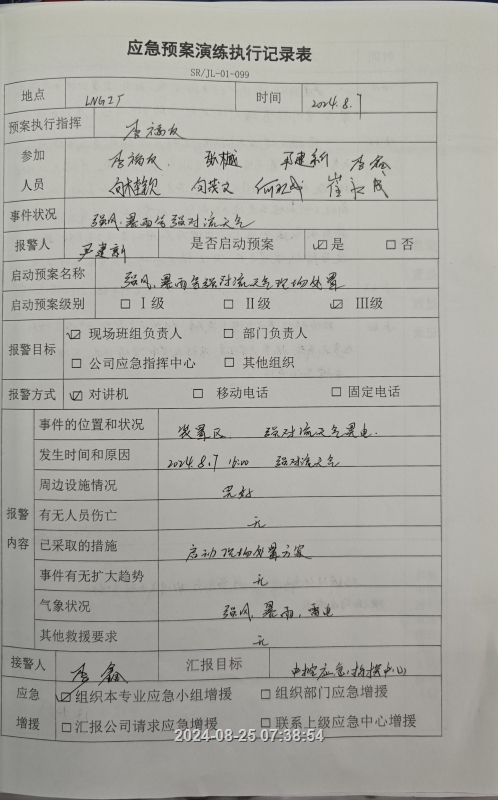 应急预案演练执行记录表
SR/JL-01-099
地点 LNG工厂 时间 2024.8.7
预案执行指挥 李福友
参加 李福友 张樾 尹建新 李鑫
人员
事件状况 强风、暴雨等强对流天气
报警人 尹建新 是否启动预案 ☑是 □否
启动预案名称 强风、暴雨等强对流天气现场处置
启动预案级别 □ I级 □ II级 ☑ III级
报警目标 ☑ 现场班组负责人 □ 部门负责人
□ 公司应急指挥中心 □ 其他组织
报警方式 ☑ 对讲机 □ 移动电话 □ 固定电话
报警内容
事件的位置和状况 装置区 强对流天气
发生时间和原因 2024.8.7 强对流天气
周边设施情况 完好
有无人员伤亡 无
已采取的措施 启动现场处置方案
事件有无扩大趋势 无
气象状况 强风、暴雨、雷电
其他救援要求 无
接警人 李鑫 汇报目标 中控应急指挥中心
应急 ☑组织本专业应急小组增援 □组织部门应急增援
增援 □汇报公司请求应急增援 □联系上级应急中心增援
2024-08-25 07:38:54